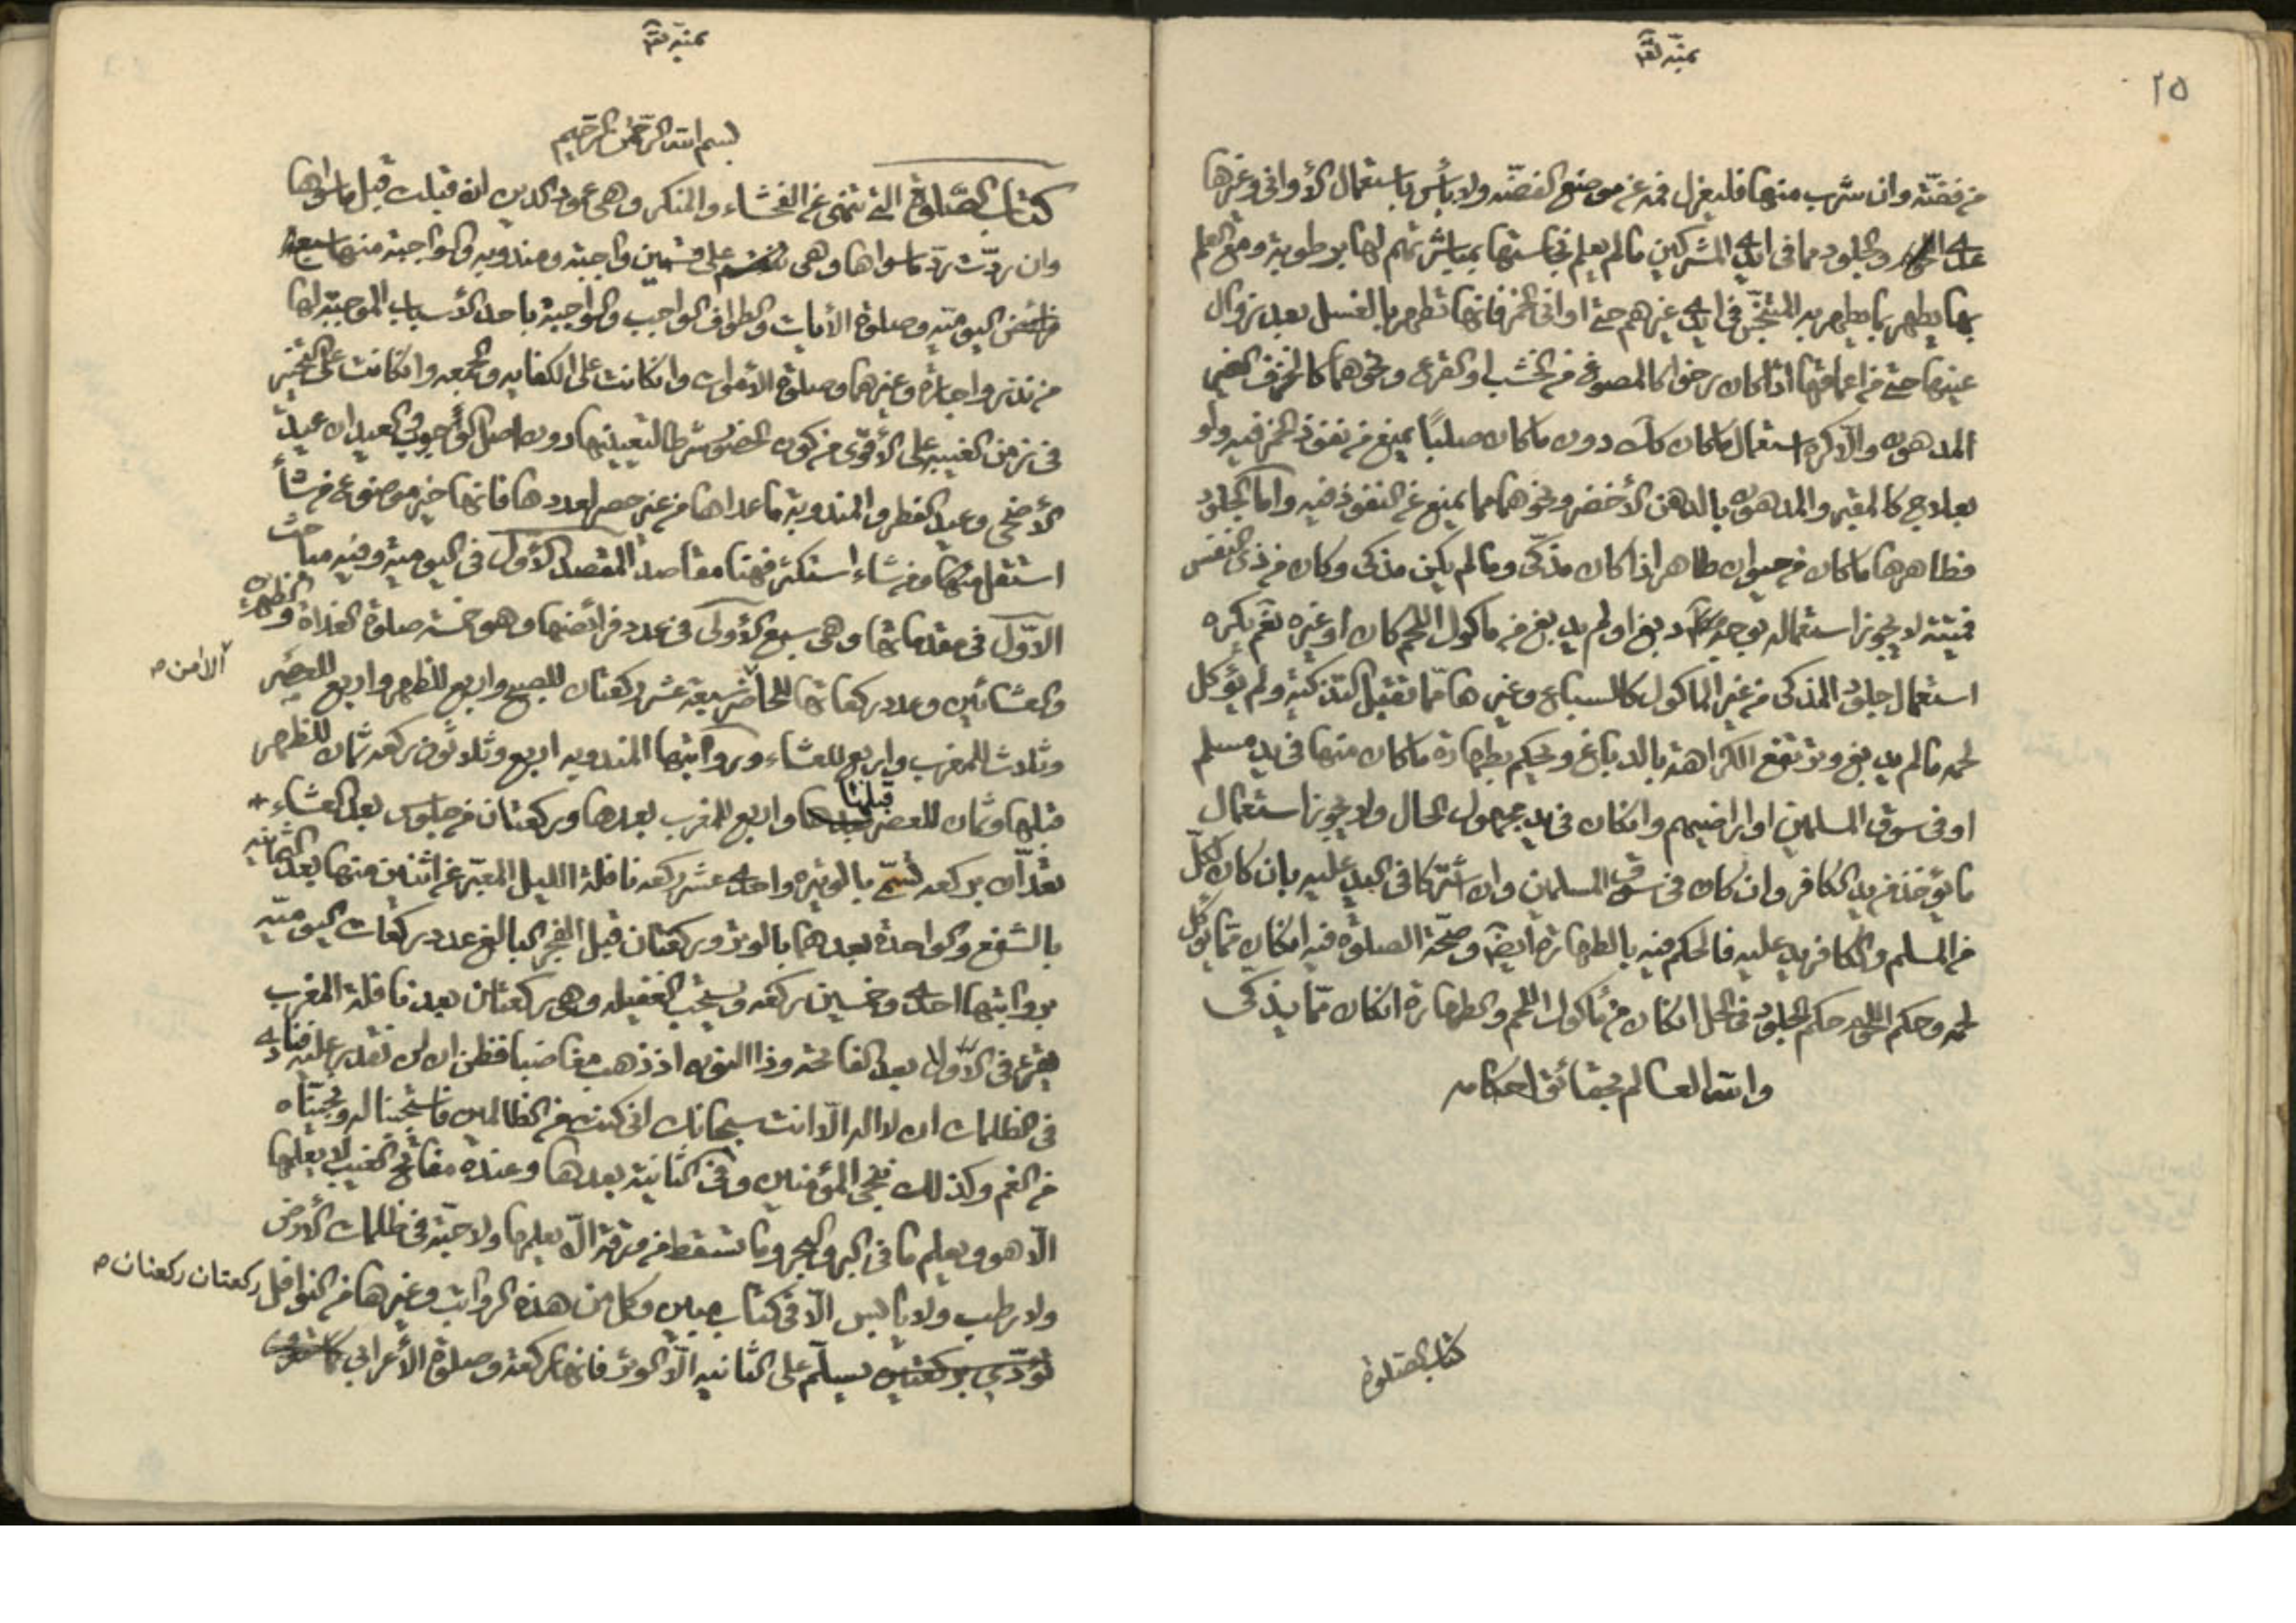 ٢٥
من فضّة وان شرب منها فليعزل فمه عن موضع الفضّه ولا بأس باستعمال الأواني وغيرها
عدى والجلود مما في ايدي المشركين ما لم يعلم نجاستها بمباشرتهم لها برطوبة ومع العلم
بها يطهر بما يطهر به المتنجّس في ايدي غيرهم حتى اواني الخمر فانها تطهر بالغسل بعد زوال
عينها حتى من اعماقها اذا كان رخوا كالمصنوع من الخشب او القرع ونحوهما كالخزف الغير
المدهون والّا كره استعمال ما كان كك دون ما كان صلبًا يمنع من نفوذ الخمر فيه ولو
بعلاج كالمقير والمدهون بالدهن الأخضر ونحوهما مما يمنع عن النفوذ فيه واما الجلود
فطاهرها ما كان من حيوان طاهر اذا كان مذكّى وما لم يكن مذكى وكان من ذي النفس
فميتة لا يجوز استعماله بوجه دبغ او لم يدبغ من ماكول اللحم كان او غيره نعم يكره
استعمال جلود المذكى من غير الماكول كالسباع وغيرها ممّا تقبل التذكية ولم يؤكل
لحمه ما لم يدبغ وترتفع الكراهة بالدباغ ويحكم بطهارة ما كان منها في يد مسلم
او في سوق المسلمين او اراضيهم وان كان في يد مجهول الحال ولا يجوز استعمال
ما يؤخذ من يد الكافر وان كان في سوق المسلمين وان اشتركا في اليد عليه بان كان لكلّ
من المسلم والكافر يد عليه فالحكم فيه بالطهارة ايضًا وصحّة الصلوة فيه ان كان ممّا يؤكل
لحمه وحكم اللحوم حكم الجلود في الحل ان كان من مأكول اللحم والطهارة ان كان ممّا يذكى
والله العالم بحقائق احكامه
كتاب الصلوة
بسم الله الرّحمن الرّحيم
كتاب الصّلوة التي تنهى عن الفحشاء والمنكر وهي عمود الدين ان قبلت قبل ما سواها
وان ردّت ردّ ما سواها وهي على قسمين واجبة ومندوبه والواجبة منها سبعة
فرائض اليوميّه وصلوة الأيات والطواف الواجب والواجبة باحد الأسباب الموجبة لها
من نذر واجارة وغيرهما وصلوة الاموات وان كانت على الكفايه والجمعه وان كانت على التخيير
في زمن الغيبة على الأقوى من كون الحضور شرطا لتعيينها دون اصل الوجوب والعيدان عيد
الأضحى وعيد الفطر والمندوبة ما عداها من غير حصر لعددها فانها خير موضوع من شاء
استقل منها ومن شاء استكثر فهنا مقاصد المقصد الأول في اليومية وفيه مباحث
الاوّل في مقدماتها وهي سبع الأولى في عدد فرائضها وهو خمسة صلوة الغداة والظهرين
والعشائين وعدد ركعاتها للحاضر سبعة عشر ركعتان للصبح واربع للظهر واربع للعصر
الامن ص
وثلاث للمغرب واربع للعشاء ورواتبها المندوبه اربع وثلاثون ركعه ثمان للظهر
قبلها وثمان للعصر قبلها واربع للمغرب بعدها وركعتان من جلوس بعد العشاء
تعدّان بركعه تسمى بالوتيره واحدى عشر ركعه نافلة الليل المعبّر عن اثنين منها بعد الثمانيه
بالشفع والواحدة بعدهما بالوتر وركعتان قبل الفجر البالغ عدد ركعات اليوميّه
برواتبها احدى وخمسين ركعه ويستحب الغفيله وهي ركعتان بعد نافلة المغرب
يقرء في الأولى بعد الفاتحه وذا النون اذ ذهب مغاضبا فظن ان لن نقدر عليه فنادى
في الظلمات ان لا اله الّا انت سبحانك اني كنت من الظالمين فاستجبنا له ونجيناه
من الغم وكذلك ننجي المؤمنين وفي الثانية بعدها وعنده مفاتح الغيب لا يعلمها
الّا هو ويعلم ما في البر والبحر وما تسقط من ورقة الّا يعلمها ولا حبّة في ظلمات الأرض
ولا رطب ولا يابس الّا في كتاب مبين وكل من هذه الرواتب وغيرها من النوافل ركعتان ركعتان ص
تؤدّى بركعتين يسلّم على الثانيه الّا الوتر فانها ركعة وصلوة الأعرابي